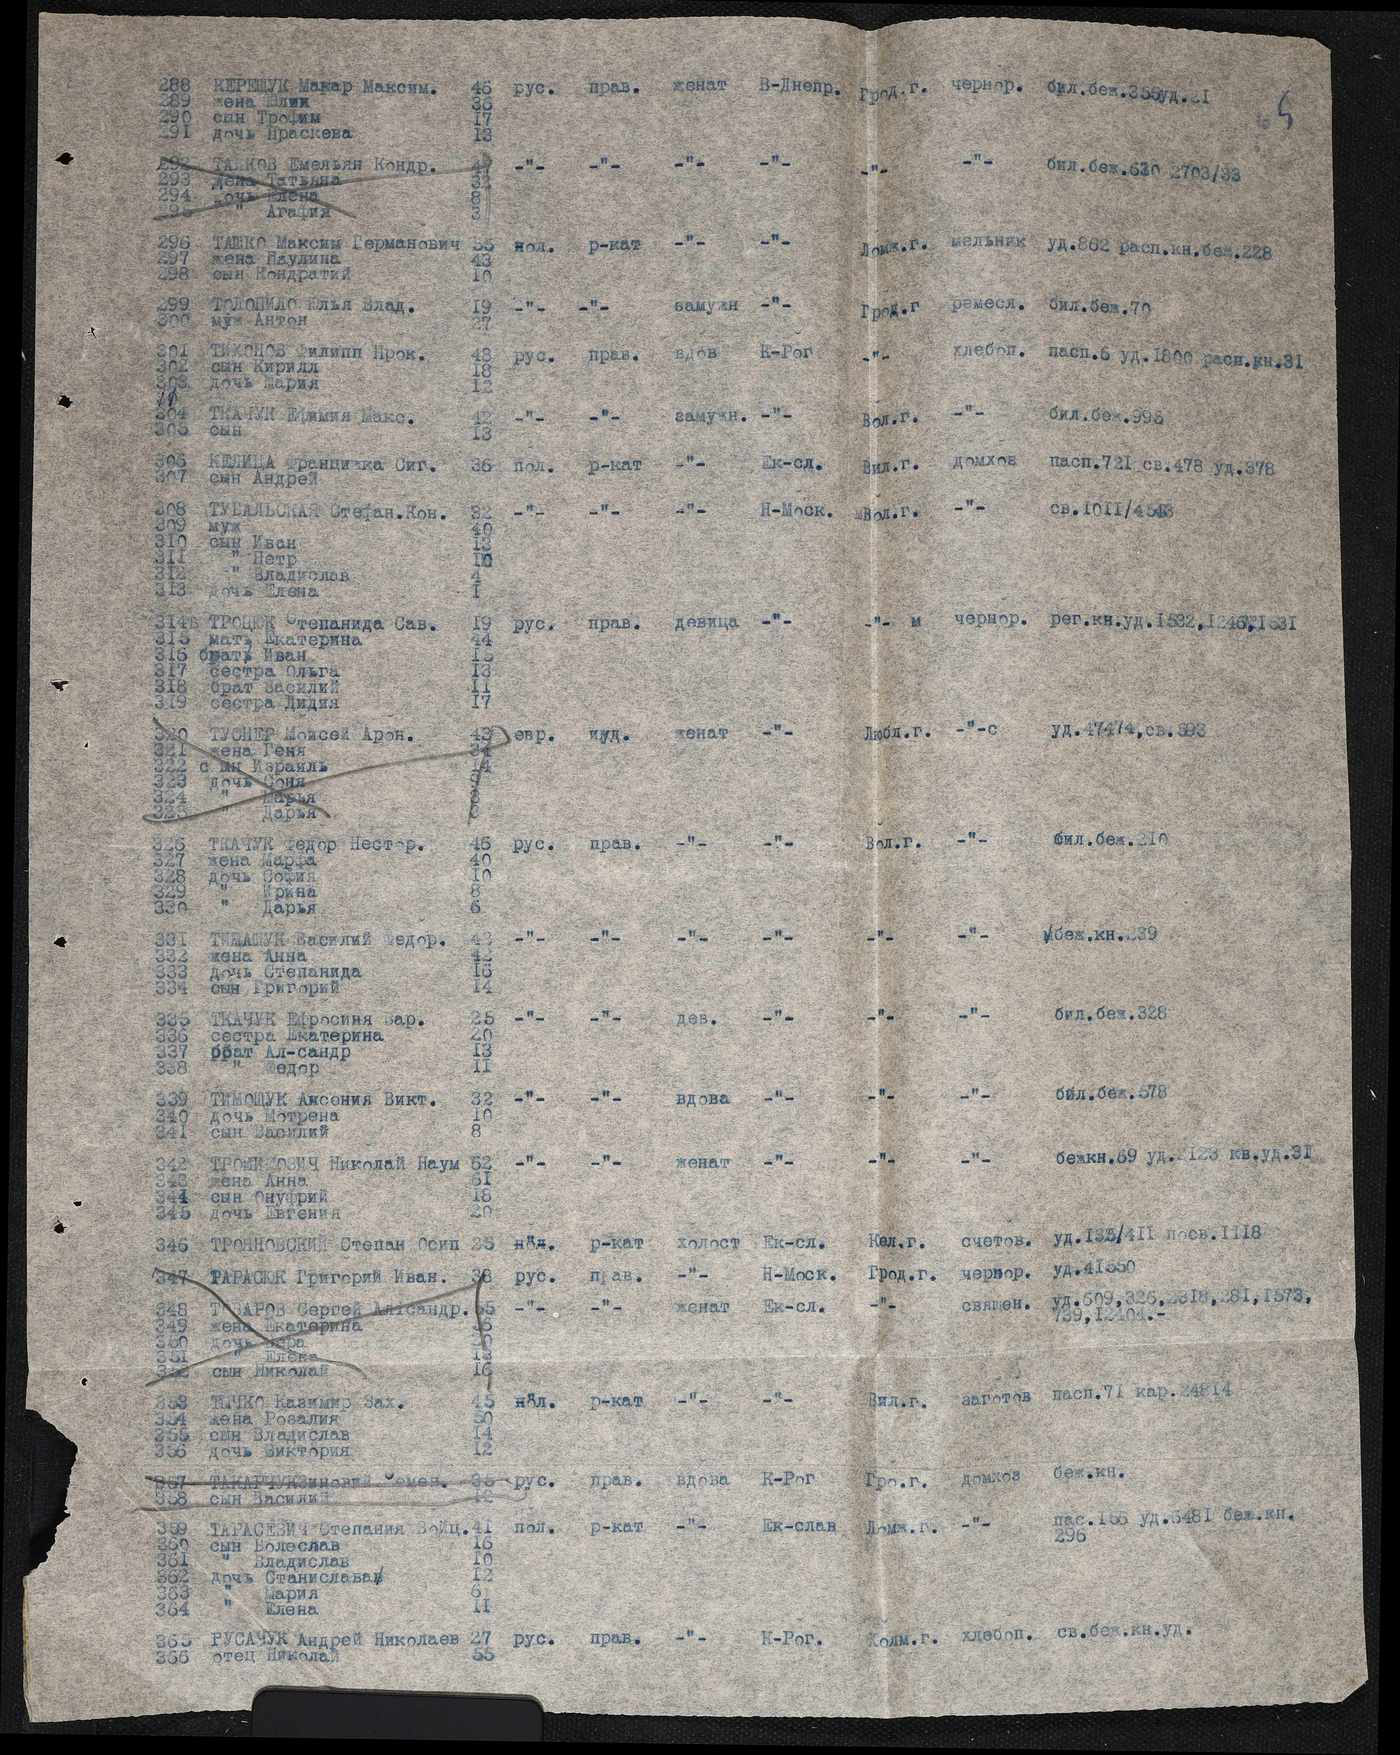 288 КЕРЕЩУК Макар Максим. 46 рус. прав. женат В-Днепр. Грод.г. чернор. бил.беж.355уд.21
289 жена Юлия 36
290 сын Трофим 17
291 дочь Праскева 13
292 ТАШКОВ Емельян Кондр. -"- -"- -"- -"- -"- -"- бил.беж.630 2703/33
293 жена Татьяна 32
294 дочь Елена 8
295 " Агафия 3
296 ТАШКО Максим Германович 55 пол. р-кат -"- -"- Ломж.г. мельник уд.862 расп.кн.беж.228
297 жена Паулина 43
298 сын Кондратий 10
299 ТОЛОПИЛО Юлья Влад. 19 -"- -"- замужн -"- Грод.г ремесл. бил.беж.70
300 муж Антон 27
301 ТИХОНОВ Филипп Прок. 43 рус. прав. вдов К-Рог -"- хлебоп. пасп.6 уд.1800 расп.кн.31
302 сын Кирилл 18
303 дочь Мария 12
304 ТКАЧУК Ефимия Макс. 42 -"- -"- замужн. -"- Вол.г. -"- бил.беж.993
305 сын 13
306 КЕЛИЦА Францишка Сиг. 36 пол. р-кат -"- Ек-сл. Вил.г. домхоз пасп.721 св.478 уд.378
307 сын Андрей
308 ТУБАЛЬСКАЯ Стефан.Кон. 32 -"- -"- -"- Н-Моск. Вол.г. -"- св.1011/4543
309 муж 40
310 сын Иван 13
311 " Петр 10
312 " Владислав 4
313 дочь Елена 1
314 ТРОЦЮК Степанида Сав. 19 рус. прав. девица -"- -"- м чернор. рег.кн.уд.1532,1246,1531
315 мать Екатерина 44
316 брат Иван 15
317 сестра Ольга 13
318 брат Василий 11
319 сестра Лидия 17
320 ТУСНЕР Мойсей Арон. 43 евр. иуд. женат -"- Любл.г. -"-с уд.47474,св.593
321 жена Геня 34
322 сын Израиль 14
323 дочь Соня
324 " Марья
325 " Дарья
326 ТКАЧУК Федор Нестер. 46 рус. прав. -"- -"- Вол.г. -"- бил.беж.210
327 жена Марфа 40
328 дочь София 10
329 " Ирина 8
330 " Дарья 6
331 ТИМАЩУК Василий Федор. 43 -"- -"- -"- -"- -"- -"- беж.кн.239
332 жена Анна 42
333 дочь Степанида 16
334 сын Григорий 14
335 ТКАЧУК Ефросиня Вар. 25 -"- -"- дев. -"- -"- -"- бил.беж.328
336 сестра Екатерина 20
337 брат Ал-сандр 13
338 " Федор 11
339 ТИМОЩУК Аксения Викт. 32 -"- -"- вдова -"- -"- -"- бил.беж.578
340 дочь Мотрена 10
341 сын Василий 8
342 ТРОФИМОВИЧ Николай Наум 52 -"- -"- женат -"- -"- -"- бежкн.69 уд.2123 кв.уд.31
343 жена Анна 51
344 сын Онуфрий 18
345 дочь Евгения 20
346 ТРОЯНОВСКИЙ Степан Осип 25 пол. р-кат холост Ек-сл. Кел.г. счетов. уд.135/411 посв.1118
347 ТАРАСЮК Григорий Иван. 38 рус. прав. -"- Н-Моск. Грод.г. чернор. уд.41550
348 ТОВАРОВ Сергей Алгсандр. 55 -"- -"- женат Ек-сл. -"- священ. уд.509,326,2318,281,1573,
739,12404.-
349 жена Екатерина
350 дочь Вера
351 " Елена
352 сын Николай 16
353 ТЫЧКО Казимир Зах. 45 пол. р-кат -"- -"- Вил.г. заготов пасп.71 кар.24814
354 жена Розалия 50
355 сын Владислав 14
356 дочь Виктория 12
357 ТАКАРЧУКЗиновий Семен. 35 рус. прав. вдова К-Рог Гро.г. домхоз беж.кн.
358 сын Василий 12
359 ТАРАСЕВИЧ Степания Войц. 41 пол. р-кат -"- Ек-слав Ломж.г. -"- пас.155 уд.5481 беж.кн.
296
360 сын Болеслав 16
361 " Владислав 10
362 дочь Станислава 12
363 " Мария 6
364 " Елена 11
365 РУСАЧУК Андрей Николаев 27 рус. прав. -"- К-Рог. Холм.г. хлебоп. св.беж.кн.уд.
366 отец Николай 55